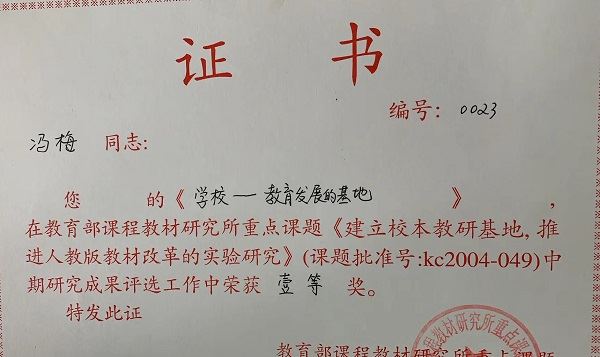 证 书
编号：0023
冯梅 同志：
您 的《学校—教育发展的基地》，
在教育部课程教材研究所重点课题《建立校本教研基地，推
进人教版教材改革的实验研究》(课题批准号:kc2004-049)中
期研究成果评选工作中荣获 壹等 奖。
特发此证
程教材研究所重点课
教育部课程教材研究所重点课题